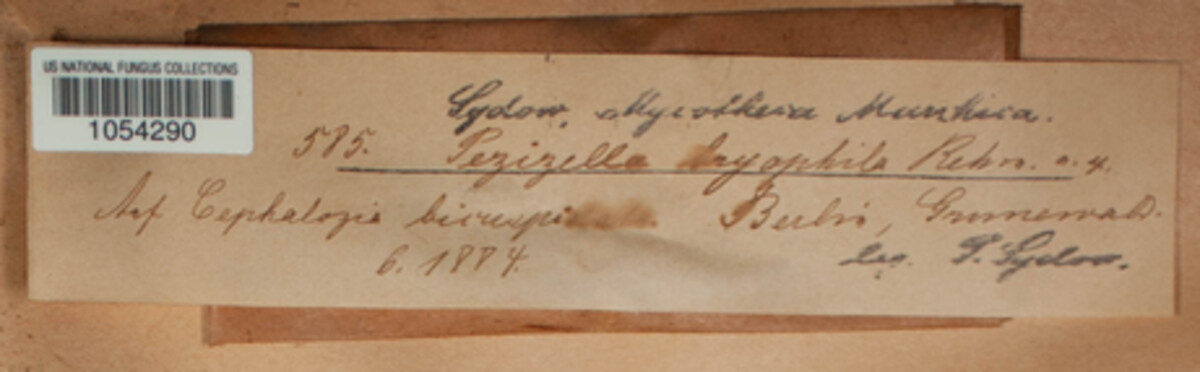 US NATIONAL FUNGUS COLLECTIONS
1054290
Sydow, Mycotheca Marchica.
585. Pezizella bryophila Rehm.
Auf Cephalozia Berlin, Grunewald.
6. 1884. leg. P. Sydow.